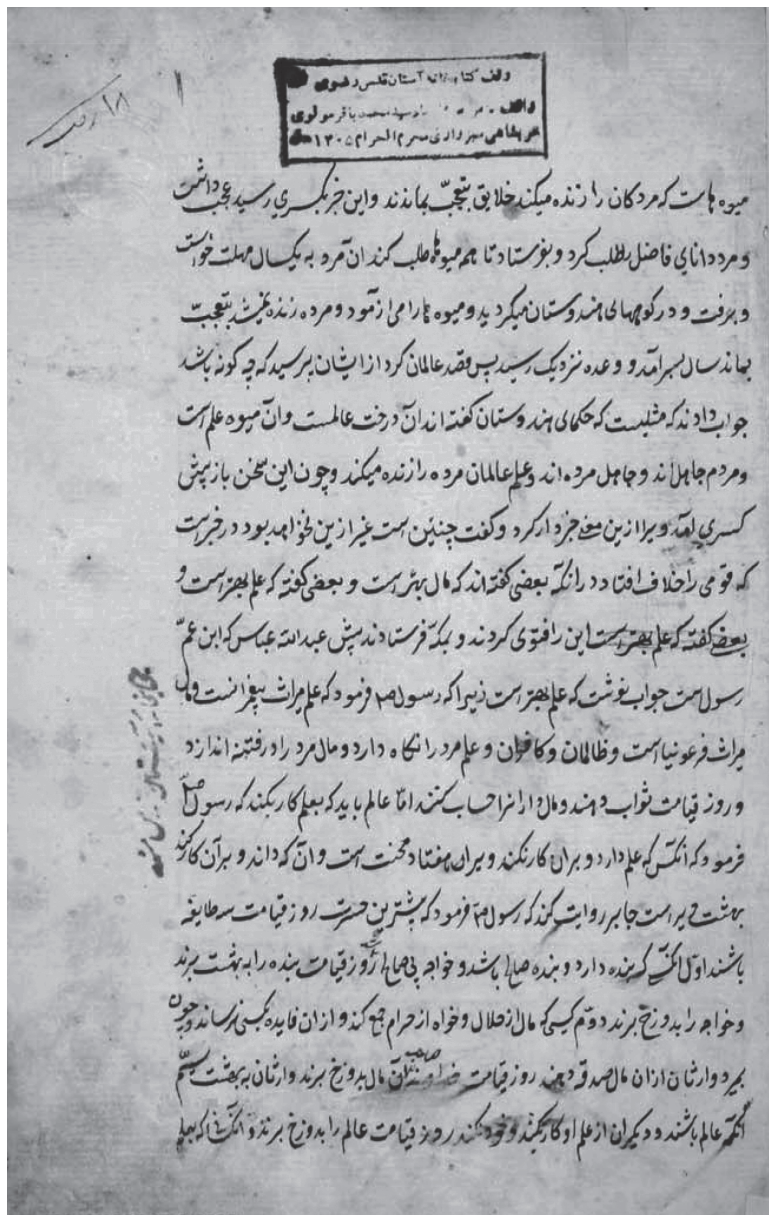 وقف کتابخانه آستان قدس رضوی
واقف سید محمد باقر مولوی
عربشاهی سبزواری محرم الحرام ۱۳۰۵
۱۸
میوه هاست که مردکان را زنده میکند خلایق بتعجب بماندند و این خبر بکسری رسید عجب داشت
و مرد دانای فاضل را طلب کرد و بفرستاد تا هم میوها طلب کند ان مرد به یکسال مهلت خواست
و برفت و در کوههای هندوستان میکردید و میوه ها را می ازمود و مرده زنده نمیشد بتعجب
بماند سال بسر امد و وعده نزدیک رسید پس قصد عالمان کرد از ایشان پرسید که چه کونه باشد
جواب دادند که مثلیست که حکمای هندوستان کفته اند ان درخت عالمست وان میوه علم است
و مردم جاهل اند و جاهل مرده اند و علم عالمان مرده را زنده میکند و چون این سخن باز پیش
کسری امد ویرا ازین معنی خبردار کرد و کفت چنین است غیر ازین نخواهد بود در خبر است
که قومی را خلاف افتاد در انکه بعضی کفته اند که مال بهتر است و بعضی کفته که علم بهتر است و
بعضی کفته که علم بهتر است این را فتوی کردند و بمکه فرستادند پیش عبدالله عباس که ابن عم
رسول است جواب نوشت که علم بهتر است زیرا که رسول صم فرمود که علم میراث پیغمبرانست و مال
میراث فرعونیا است و ظالمان و کافران و علم مرد را نکاه دارد و مال مرد را در فتنه اندازد
و روز قیامت ثواب دهند و مال دار انرا حساب کنند امّا عالم باید که بعلم کار بکند که رسول صم
فرمود که انکس که علم دارد و بران کار نکند ویرا هفتاد محنت است وان که داند و برآن کار کند
بهشت ویر است جابر روایت کند که رسول صم فرمود که بیشترین حسرت روز قیامت سه طایفه
باشند اوّل انکسی که بنده دارد و بنده صالح باشد و خواجه بی صالح روز قیامت بنده را به بهشت برند
و خواجه را بدوزخ برند دوّم کسی که مال از حلال و خواه از حرام جمع کند و از ان فایده بکسی نرساند و چون
بمیرد وارثان ازان مال صدقه دهند روز قیامت صاحب آن مال بدوزخ برند وارثان به بهشت سیّم
انکه عالم باشند و دیکران از علم او کار کنند و خود نکند روز قیامت عالم را بدوزخ برند و انکسانی که بعلم